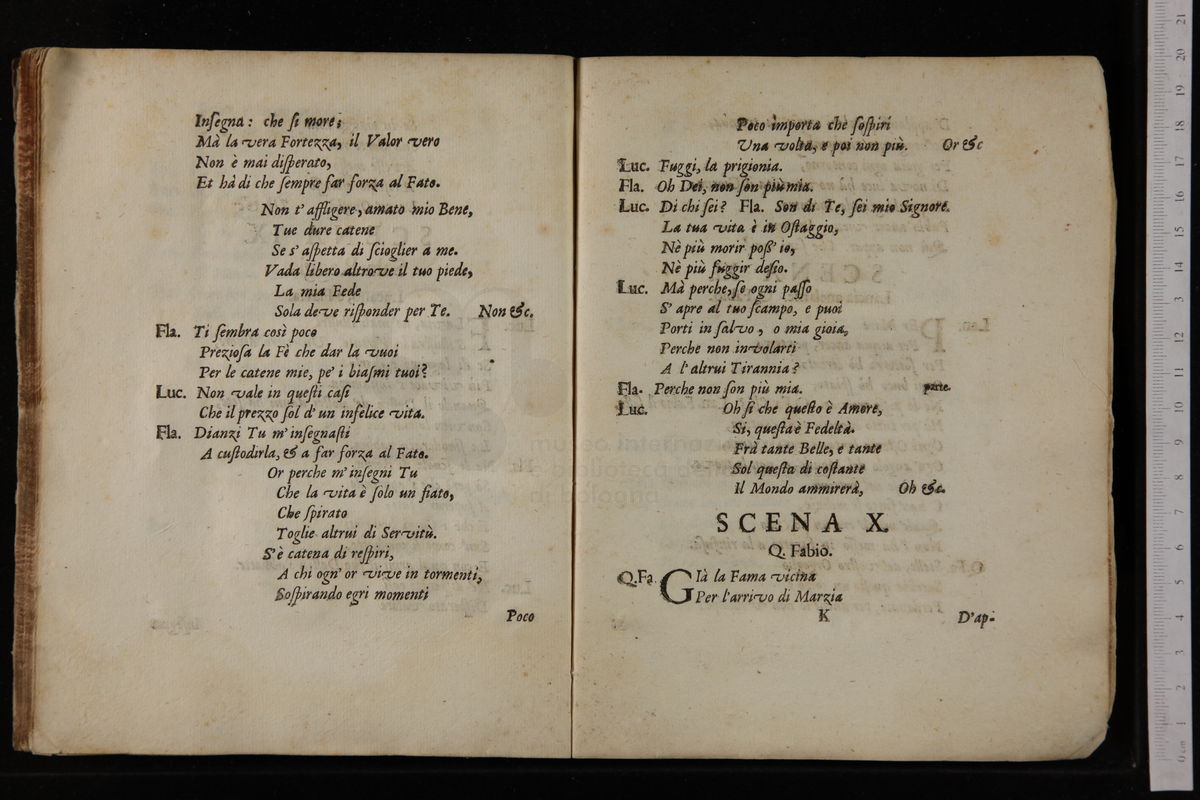 Inſegna: che ſi more;
Mà la vera Fortezza, il Valor vero
Non è mai diſperato,
Et hà di che ſempre far forza al Fato.
Non t' affligere, amato mio Bene,
Tue dure catene
Se s' aſpetta di ſcioglier a me.
Vada libero altrove il tuo piede,
La mia Fede
Sola deve riſponder per Te. Non &c.
Fla. Ti ſembra così poco
Prezioſa la Fè che dar la vuoi
Per le catene mie, pe' i biaſmi tuoi?
Luc. Non vale in queſti caſi
Che il prezzo ſol d' un infelice vita.
Fla. Dianzi Tu m' inſegnaſti
A cuſtodirla, & a far forza al Fato.
Or perche m' inſegni Tu
Che la vita è ſolo un fiato,
Che ſpirato
Toglie altrui di Servitù.
S' è catena di reſpiri,
A chi ogn' or vive in tormenti,
Soſpirando egri momenti
Poco
Poco importa che ſoſpiri
Una volta, e poi non più. Or &c
Luc. Fuggi, la prigionia.
Fla. Oh Dei, non ſon più mia.
Luc. Di chi ſei? Fla. Son di Te, ſei mio Signore.
La tua vita è in Oſtaggio,
Nè più morir poſs' io,
Nè più fuggir deſio.
Luc. Mà perche, ſe ogni paſſo
S' apre al tuo ſcampo, e puoi
Porti in ſalvo, o mia gioia,
Perche non involarti
A l' altrui Tirannia?
Fla. Perche non ſon più mia. parte.
Luc. Oh ſi che queſto è Amore,
Si, queſta è Fedeltà.
Frà tante Belle, e tante
Sol queſta di coſtante
Il Mondo ammirerà, Oh &c.
SCENA X.
Q. Fabio.
Q.Fa. GIà la Fama vicina
Per l' arrivo di Marzia
K D' ap-